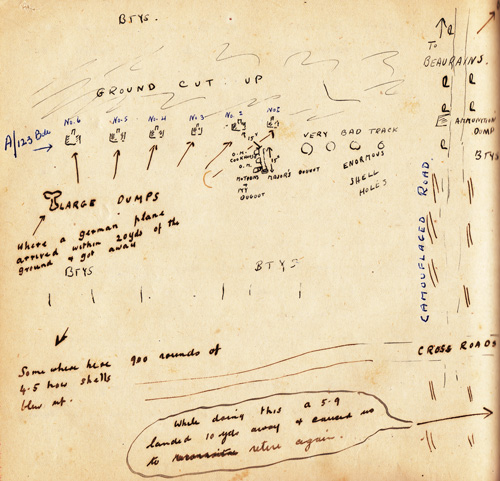 BTYS.
TO
BEAURAINS.
GROUND CUT UP
A/123 Bde
No. 6
No. 5
No. 4
No. 3
No. 2
No 1
15"
VERY BAD TRACK
AMMUNITION
DUMP
BTYS
COOKHOUSE
MAJOR'S DUGOUT
MY
DUGOUT
ENORMOUS
SHELL
HOLES
LARGE DUMPS
Where a german plane
arrived within 20yds of the
ground & got away
BTYS
BTYS
CAMOUFLAGED ROAD.
CROSS ROADS
Some where here 900 rounds of
4.5 how shells
blew up.
While doing this a 5.9
landed 10 yds away & caused us
to retire again.